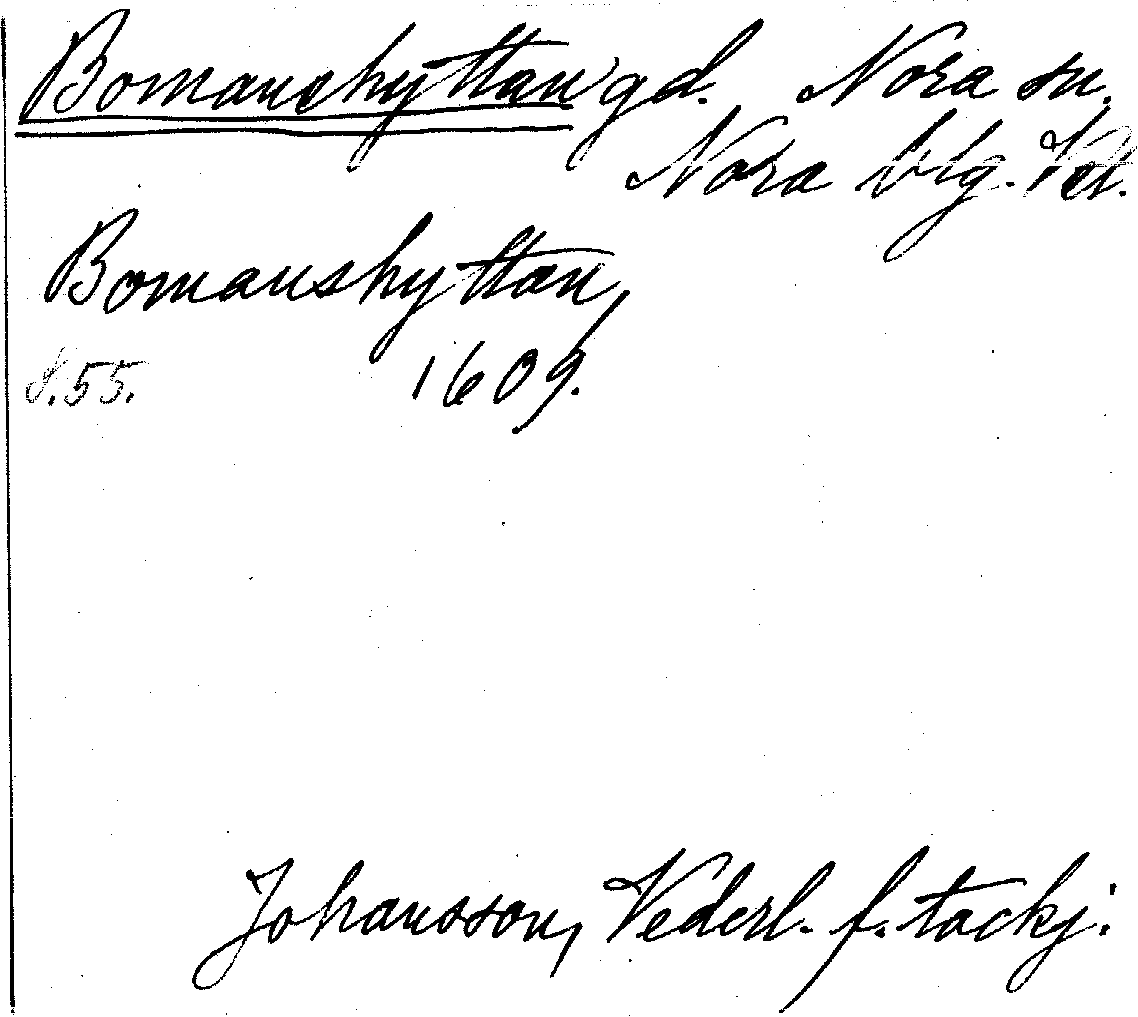 Bomanshyttan gd. Nora sn.
Nora blg. Vstl.
Bomanshyttan,
s. 55. 1609.
Johansson, Vederl. f. tackj.